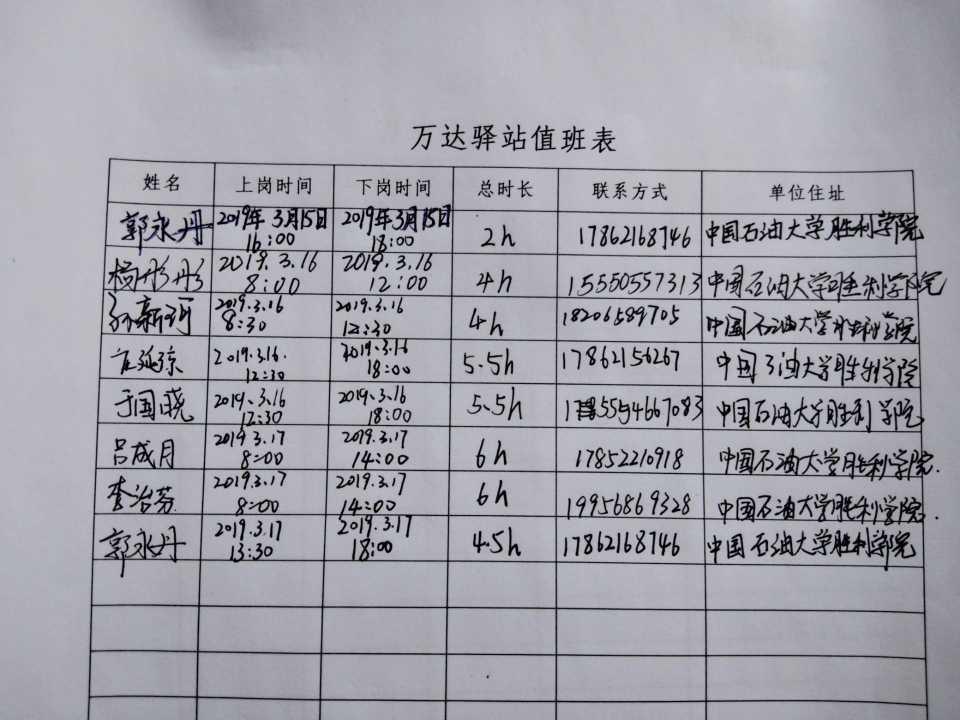 万达驿站值班表
姓名 上岗时间 下岗时间 总时长 联系方式 单位住址
郭永丹 2019年3月15日 16:00 2019年3月15日 18:00 2h 17862168746 中国石油大学胜利学院
杨彤彤 2019.3.16 8:00 2019.3.16 12:00 4h 15550557313 中国石油大学胜利学院
孙新珂 2019.3.16 8:30 2019.3.16 12:30 4h 18206589705 中国石油大学胜利学院
2019.3.16. 12:30 2019.3.16 18:00 5.5h 17862156267 中国石油大学胜利学院
于国晓 2019.3.16 12:30 2019.3.16 18:00 5.5h 中国石油大学胜利学院
吕成月 2019 3.17 8:00 2019.3.17 14:00 6h 17852210918 中国石油大学胜利学院.
李治芬 2019.3.17 8:00 2019.3.17 14:00 6h 19956869328 中国石油大学胜利学院.
郭永丹 2019.3.17 13:30 2019.3.17 18:00 4.5h 17862168746 中国石油大学胜利学院